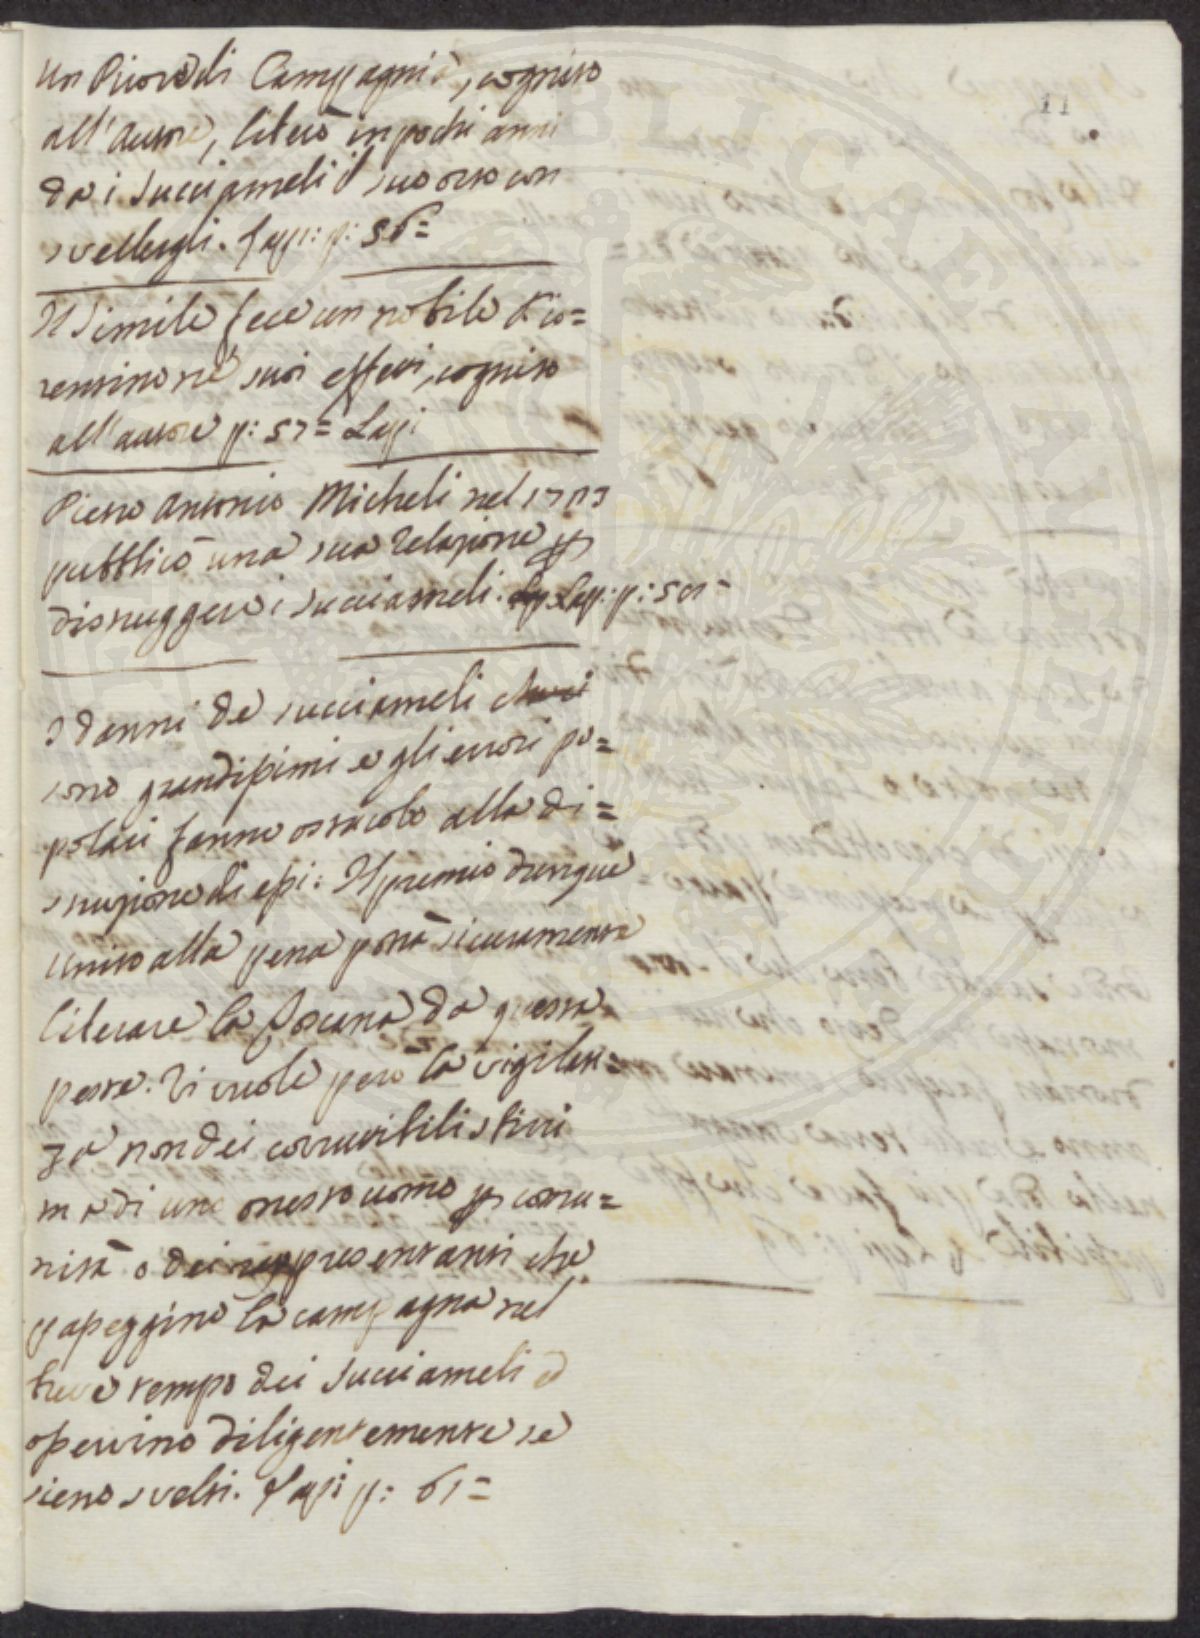 11
un Priore di Campagnia, cognito
all'Autore, liberò in pochi anni
da i succiameli il suo orto con
svellergli. Lapi: p: 56=
Il Simile fece un nobile Fio=
rentino ne' suoi effetti, cognito
all'autore p: 57= Lapi
Pietro Antonio Micheli nel 1723
pubblicò una sua relazione per
distruggere i succiameli. Lapi: p: 58=
I danni de succiameli
sono grandissimi e gli errori po=
polari fanno ostacolo alla di=
struzione di essi: Il premio dunque
unito alla pena potrà sicuramente
liberare la Toscana da questa
peste. Vi vuole però la vigilan=
za non dei corruttibili stivi
ma di un onesto uomo per comu=
nità o dei rappresentanti che
passeggino la campagna nel
breve tempo dei succiameli ed
osservino diligentemente se
sieno svelti. Lapi p: 61=